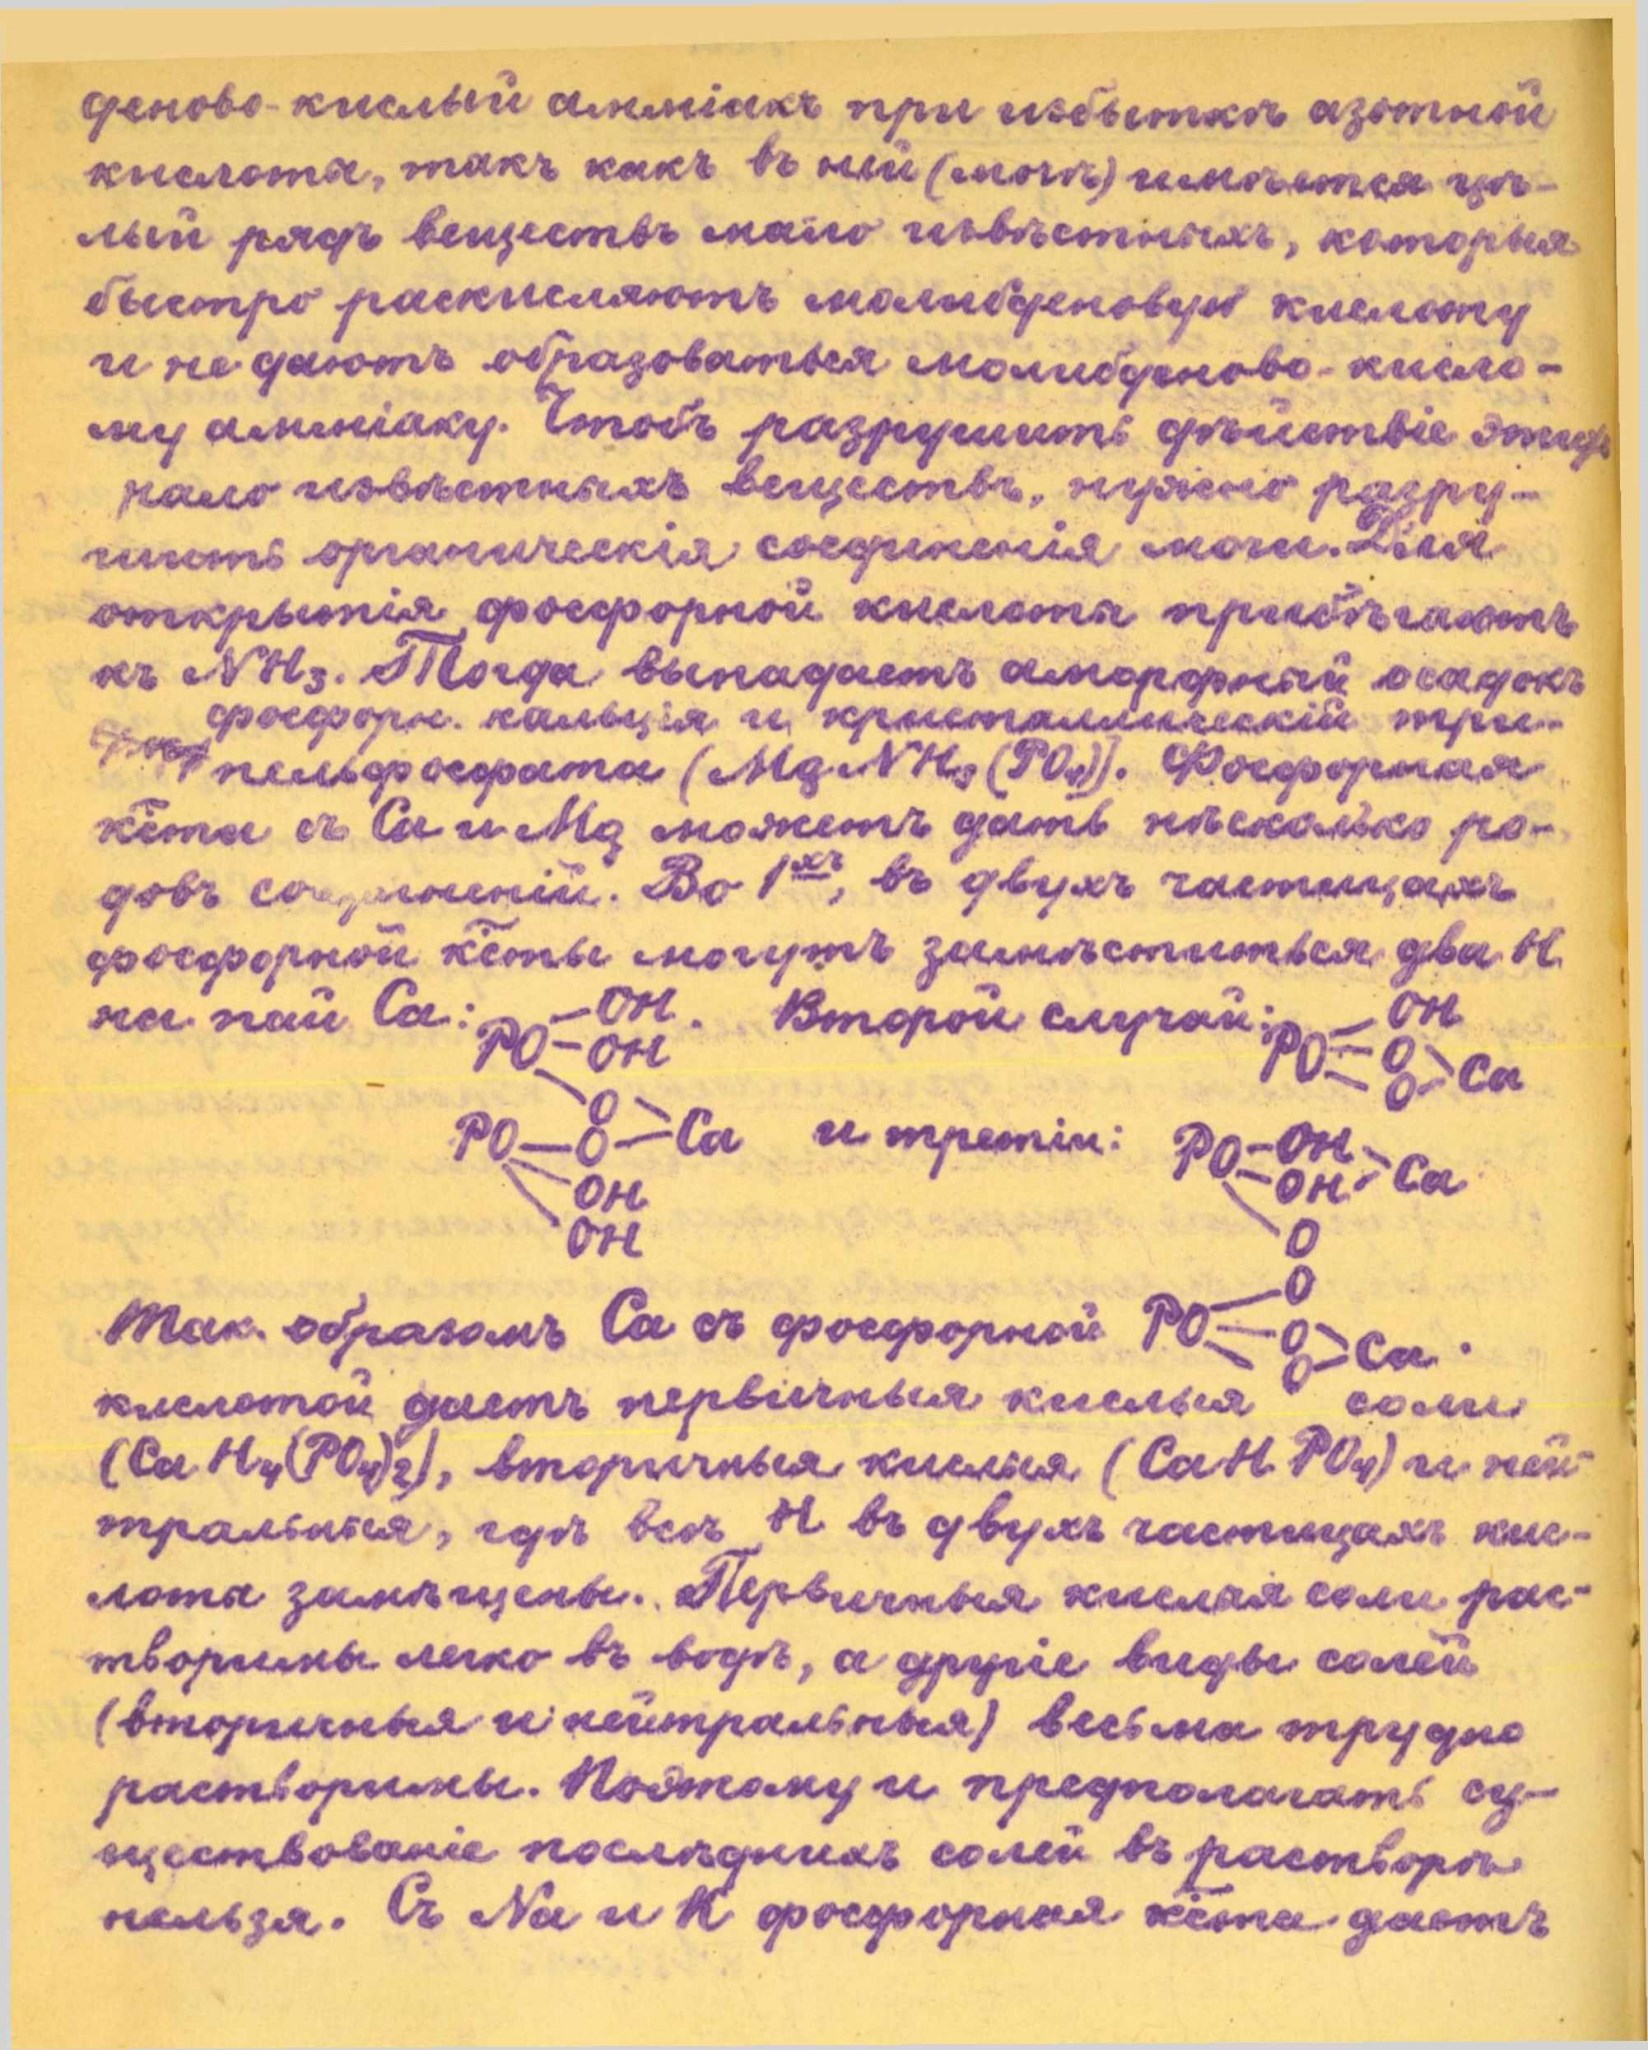 деново-кислый амміакъ при избыткѣ азотной
кислоты, такъ какъ въ ней (мочѣ) имѣется цѣ-
лый рядъ веществъ мало извѣстныхъ, которыя
быстро раскисляютъ молибденовую кислоту
и не даютъ образоваться молибденово-кисло-
му амміаку. Чтобъ разрушить дѣйствіе этихъ
мало извѣстныхъ веществъ, нужно разру-
шить органическія соединенія мочи. Для
открытія фосфорной кислоты прибѣгаютъ
къ NH₃. Тогда выпадаетъ аморфный осадокъ
фосфорн. кальція и кристаллическій три-
пельфосфата (MgNH₃(PO₄)]. Фосфорная
к͞ста съ Ca и Mg можетъ дать нѣсколько ро-
довъ соединеній. Во 1хъ, въ двухъ частицахъ
фосфорной к͞сты могутъ замѣститься два H
на пай Ca: PO–OH OH O . Второй случай: PO OH O O Ca
PO–O Ca OH OH и третій: PO–OH OH Ca O
Так. образомъ Ca съ фосфорной PO O O O Ca.
кислотой даетъ первичныя кислыя соли
(CaH₄(PO₄)₂), вторичныя кислыя (CaHPO₄) и ней-
тральныя, гдѣ всѣ H въ двухъ частицахъ кис-
лоты замѣщены. Первичныя кислыя соли рас-
творимы легко въ водѣ, а другіе виды солей
(вторичныя и нейтральныя) весьма трудно
растворимы. Поэтому и предполагать су-
ществованіе послѣднихъ солей въ растворѣ
нельзя. Съ Na и K фосфорная к͞ста даетъ